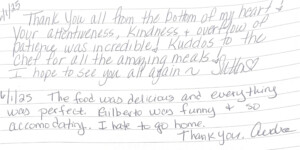 Thank you all from the bottom of my heart
Your attentiveness, Kindness, + overflow of
patience was incredible! Kuddos to the
chef for all the amazing meals
I hope to see you all again ~
6/1/25 The food was delicious and everything
was perfect. Gilberto was funny & so
accomodating. I hate to go home.
Thank you.